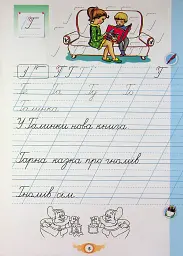 Г
Г Г Г Г
Га Га Гу Го
Галинка
У Галинки нова книга.
Гарна казка про гномів.
Гномів сім.